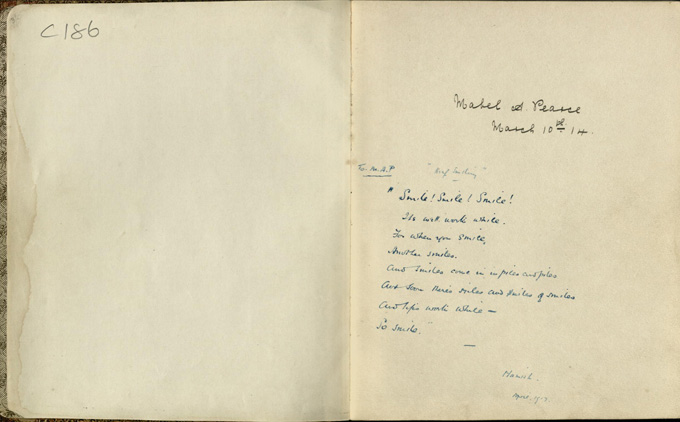 C186
Mabel A. Pearce
March 10th 14.
To M.A.P
"Keep Smiling"
"Smile! Smile! Smile!
It's well worth while.
For when you smile,
Another smiles.
And smiles come in in piles and piles
And soon there's miles and miles of smiles
And life's worth while –
So smile."